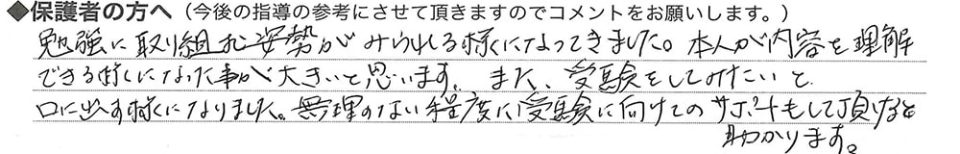 ◆保護者の方へ（今後の指導の参考にさせて頂きますのでコメントをお願いします。）
勉強に取り組む姿勢がみられる様になってきました。本人が内容を理解
できる様になった事が大きいと思います。また、受験をしてみたいと
口に出す様になりました。無理のない程度に受験に向けてのサポートもして頂けると
助かります。